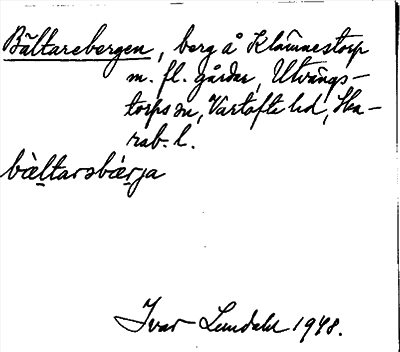 Bältarebergen, berg å Klämmestorp
m. fl. gårdar, Utvängs-
torps sn, Vartofta hd, Ska-
rab. l.
bältarsbärja
Ivar Lundahl 1948.